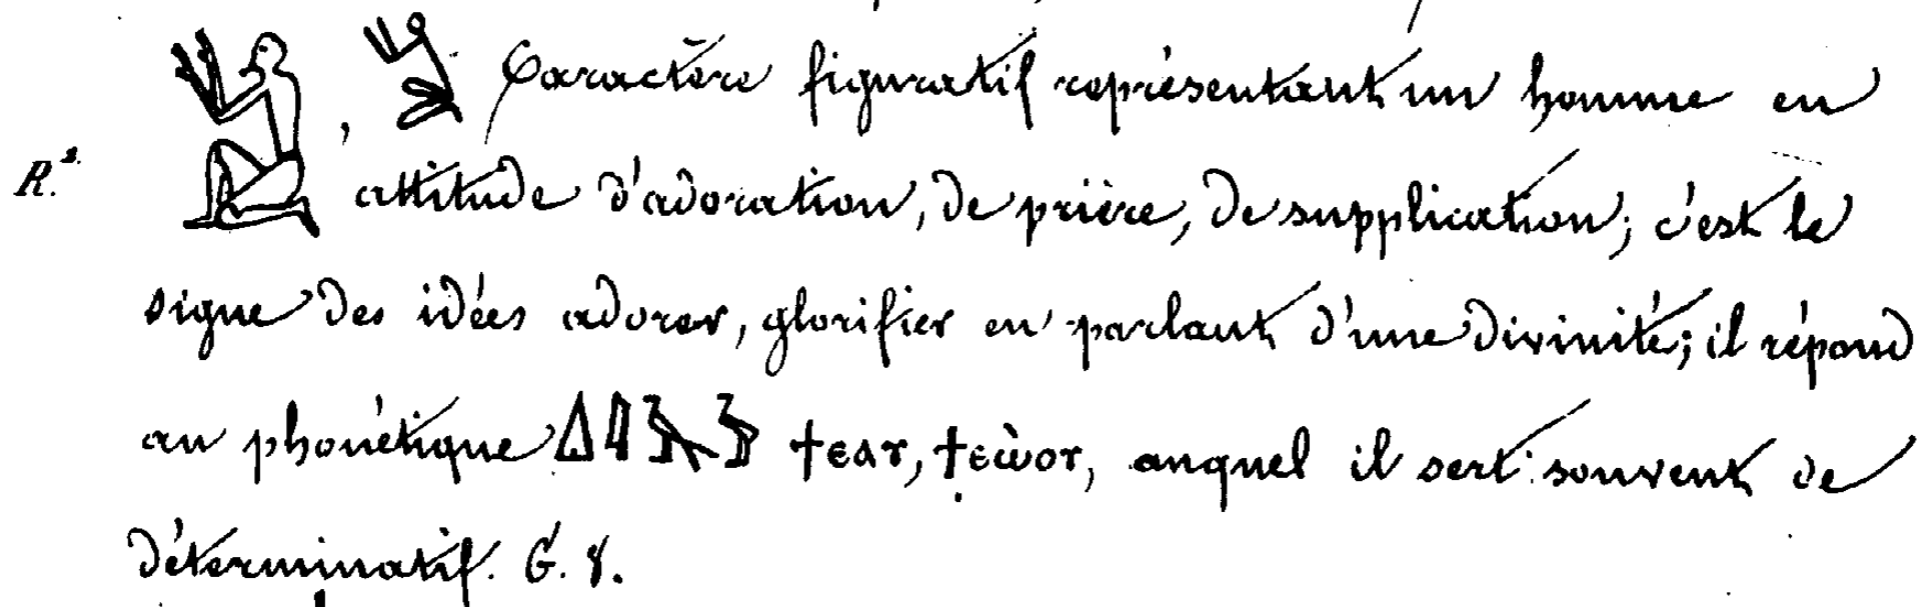 R.² 𓀃, Caractère figuratif représentant un homme en
attitude d'adoration, de prière, de supplication; c'est le
signe des idées adorer, glorifier en parlant d'une divinité; il répond
au phonétique ϯεαⲩ, ϯεⲱ̀ⲟⲩ, auquel il sert souvent de
déterminatif. G. 8.